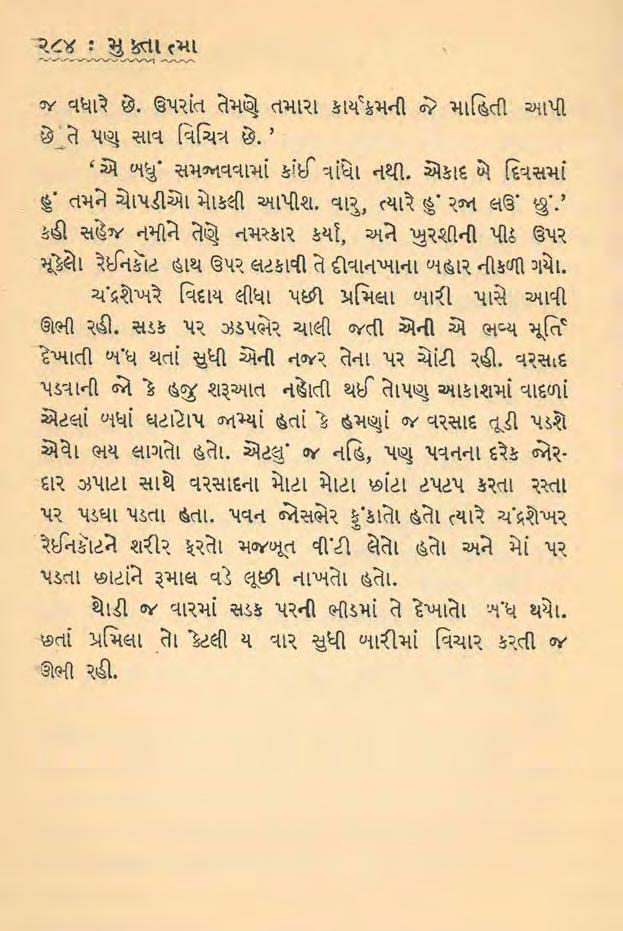 ૨૮૪ : મુક્તાત્મા
જ વધારે છે. ઉપરાંત તેમણે તમારા કાર્યક્રમની જે માહિતી આપી
છે તે પણ સાવ વિચિત્ર છે.’
‘એ બધું સમજાવવામાં કાંઈ વાંધો નથી. એકાદ બે દિવસમાં
હું તમને ચોપડીઓ મોકલી આપીશ. વારુ, ત્યારે હું રજા લઉં છું.’
કહી સહેજ નમીને તેણે નમસ્કાર કર્યા, અને ખુરશીની પીઠ ઉપર
મૂકેલો રેઈનકોટ હાથ ઉપર લટકાવી તે દીવાનખાના બહાર નીકળી ગયો.
ચંદ્રશેખરે વિદાય લીધા પછી પ્રમિલા બારી પાસે આવી
ઊભી રહી. સડક પર ઝડપભેર ચાલી જતી એની એ ભવ્ય મૂર્તિ
દેખાતી બંધ થતાં સુધી એની નજર તેના પર ચોંટી રહી. વરસાદ
પડવાની જો કે હજુ શરૂઆત નહોતી થઈ તોપણ આકાશમાં વાદળાં
એટલાં બધાં ઘટાટોપ જામ્યાં હતાં કે હમણાં જ વરસાદ તૂડી પડશે
એવો ભય લાગતો હતો. એટલું જ નહિ, પણ પવનના દરેક જોર-
દાર ઝપાટા સાથે વરસાદના મોટા મોટા છાંટા ટપટપ કરતા રસ્તા
પર પડઘા પડતા હતા. પવન જોસભેર ફુંકાતો હતો ત્યારે ચંદ્રશેખર
રેઈનકોટને શરીર ફરતો મજબૂત વીંટી લેતો હતો અને મોં પર
પડતા છાટાંને રૂમાલ વડે લૂછી નાખતો હતો.
થોડી જ વારમાં સડક પરની ભીડમાં તે દેખાતો બંધ થયો.
છતાં પ્રમિલા તો કેટલી ય વાર સુધી બારીમાં વિચાર કરતી જ
ઊભી રહી.